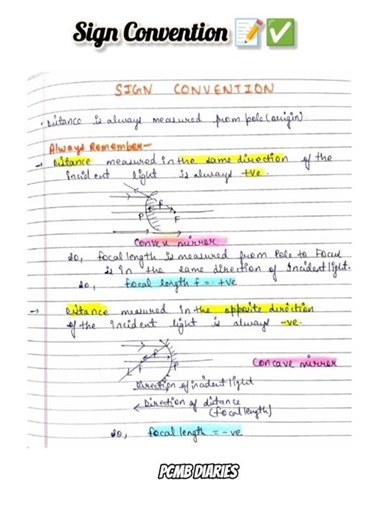 Sign Convention 📝✅
SIGN CONVENTION
. Distance is always measured from pole (origin).
Always Remember-
→ Distance measured in the same direction of the
incident light is always +ve.
P F
Convex mirror
So, focal length is measured from Pole to Focus
is in the same direction of Incident light.
So, focal length f = +ve
→ Distance measured in the opposite direction
of the incident light is always -ve.
Concave mirror
Direction of incident light
Direction of distance
(focal length)
So, focal length = -ve
PCMB DIARIES